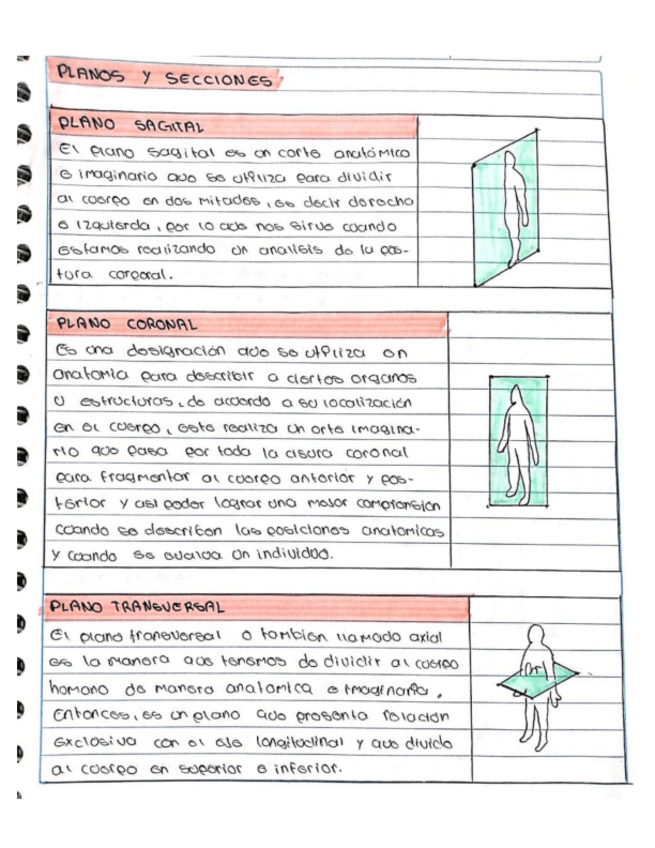 PLANOS Y SECCIONES
PLANO SAGITAL
El plano sagital es un corte anatómico
e imaginario que se utiliza para dividir
al cuerpo en dos mitades, es decir derecho
e izquierda, por lo que nos sirve cuando
estamos realizando un analisis de la pos-
tura corporal.
PLANO CORONAL
Es una designación que se utiliza en
anatomia para describir a ciertos organos
u estructuras, de acuerdo a su localización
en el cuerpo, este realiza un orte imagina-
rio que pasa por toda la cisura coronal
para fragmentar al cuerpo anterior y pos-
terior y asi poder lograr una mejor comprensión
cuando se describen las posiciones anatomicas
y cuando se evalua un individuo.
PLANO TRANSVERSAL
El plano transversal o tambien llamado axial
es la manera que tenemos de dividir al cuerpo
humano de manera anatomica e imaginaria.
Entonces, es un plano que presenta relación
exclusiva con el eje longitudinal y que divide
al cuerpo en superior e inferior.